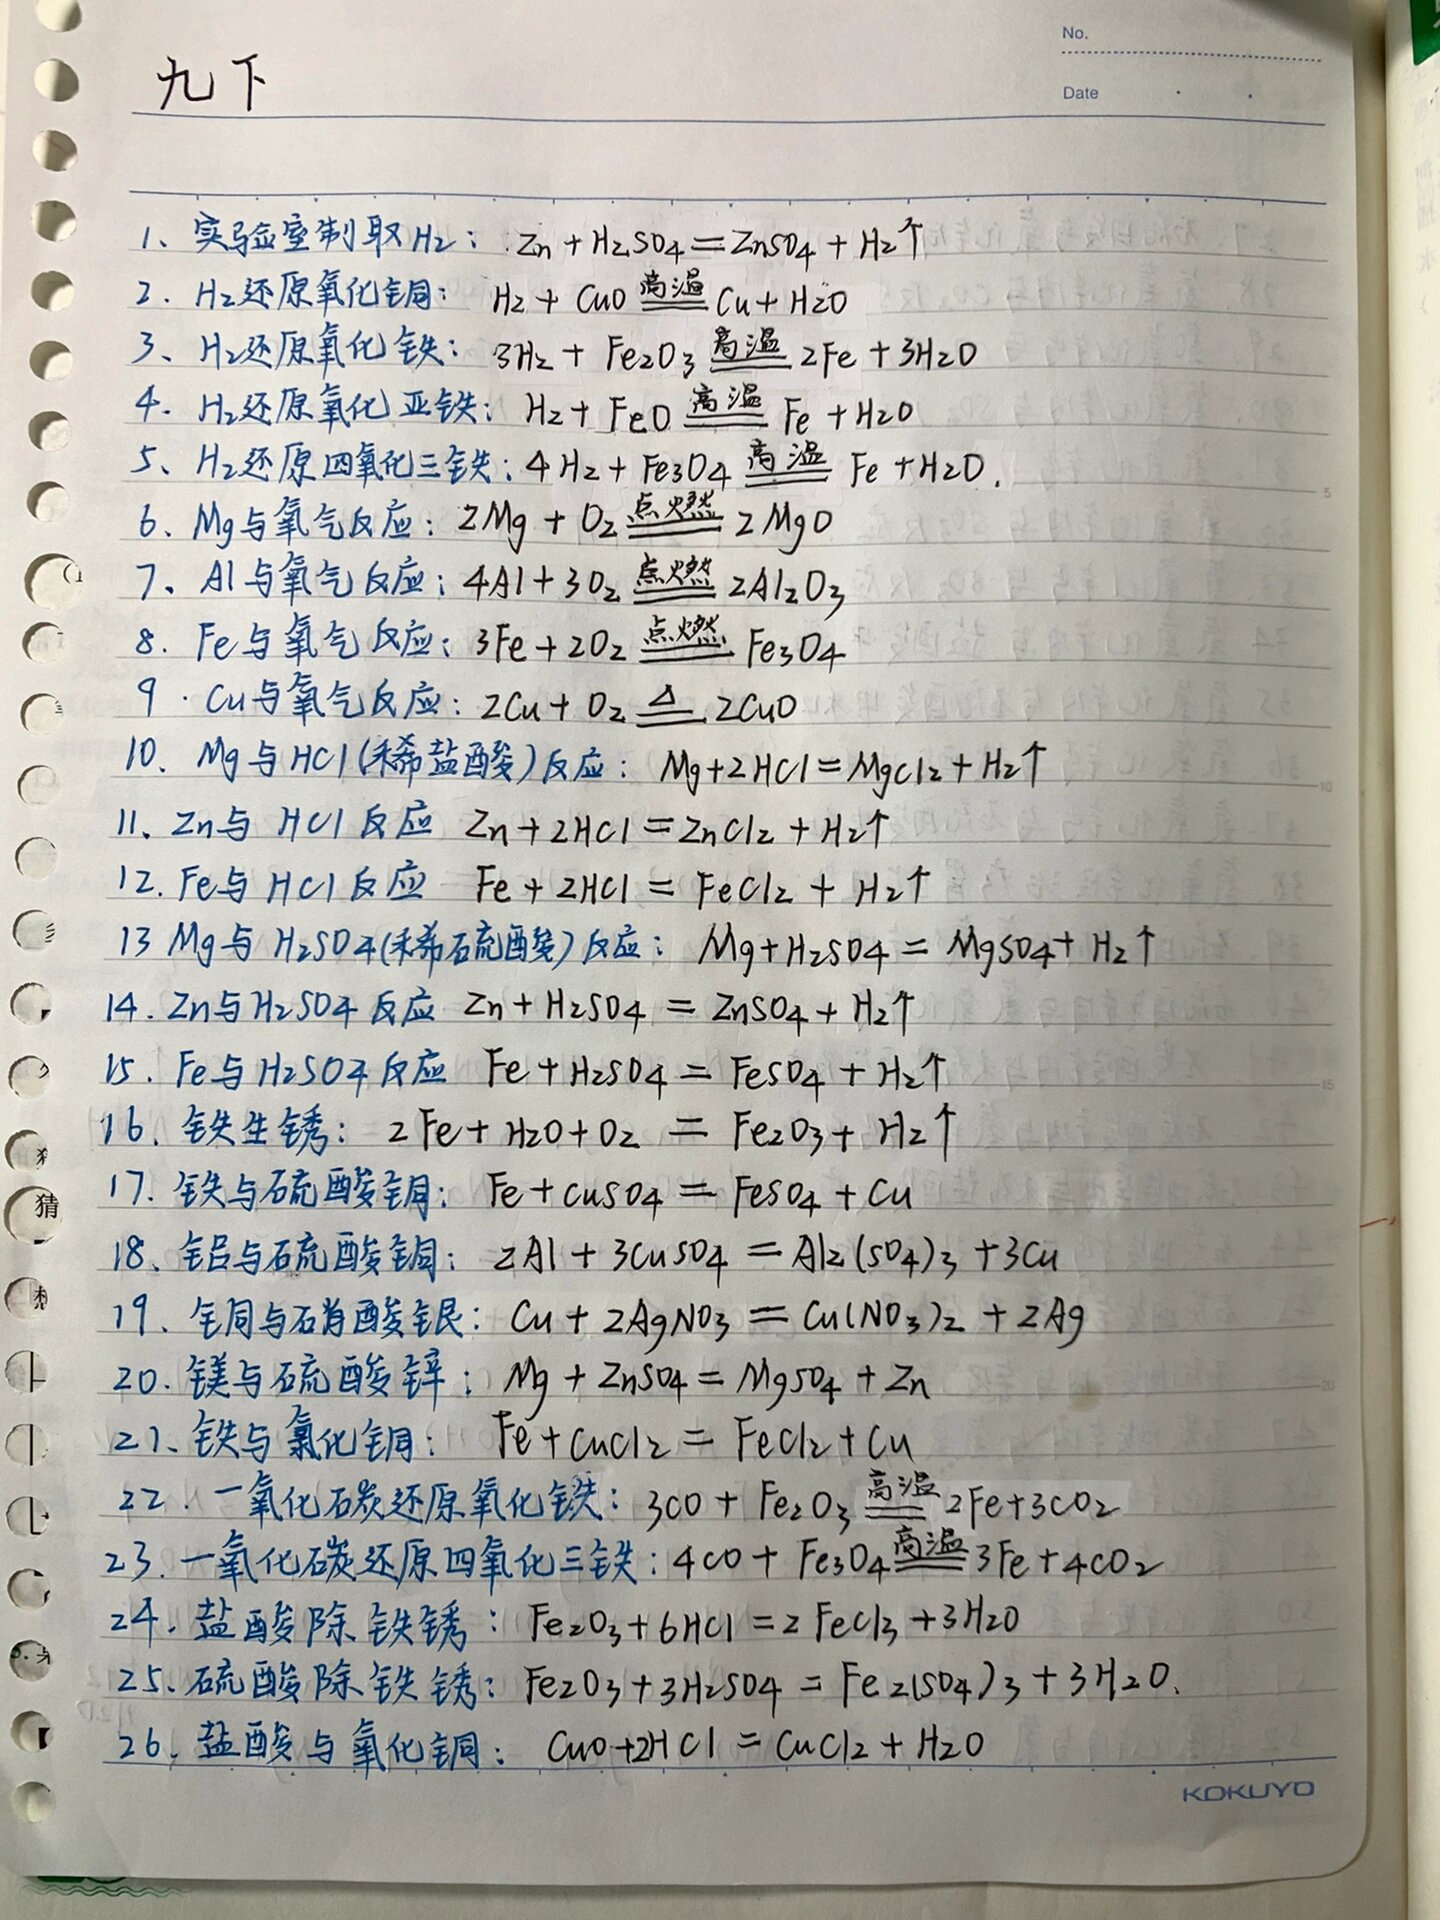 No.
九下
Date
1、实验室制取H₂：Zn+H₂SO₄=ZnSO₄+H₂↑
2.H₂还原氧化铜：H₂+CuO 高温 Cu+H₂O
3、H₂还原氧化铁：3H₂+Fe₂O₃ 高温 2Fe+3H₂O
4.H₂还原氧化亚铁：H₂+FeO 高温 Fe+H₂O
5、H₂还原四氧化三铁：4H₂+Fe₃O₄ 高温 Fe+H₂O.
6、Mg与氧气反应：2Mg+O₂ 点燃 2MgO
7、Al与氧气反应：4Al+3O₂ 点燃 2Al₂O₃
8.Fe与氧气反应：3Fe+2O₂ 点燃 Fe₃O₄
9.Cu与氧气反应：2Cu+O₂ △ 2CuO
10、Mg与HCl(稀盐酸)反应：Mg+2HCl=MgCl₂+H₂↑
11、Zn与HCl反应 Zn+2HCl=ZnCl₂+H₂↑
12.Fe与HCl反应 Fe+2HCl=FeCl₂+H₂↑
13 Mg与H₂SO₄(稀硫酸)反应：Mg+H₂SO₄=MgSO₄+H₂↑
14.Zn与H₂SO₄反应 Zn+H₂SO₄=ZnSO₄+H₂↑
15.Fe与H₂SO₄反应 Fe+H₂SO₄=FeSO₄+H₂↑
16、铁生锈：2Fe+H₂O+O₂=Fe₂O₃+H₂↑
17.铁与硫酸铜：Fe+CuSO₄=FeSO₄+Cu
18、铝与硫酸铜：2Al+3CuSO₄=Al₂(SO₄)₃+3Cu
19.铜与硝酸银：Cu+2AgNO₃=Cu(NO₃)₂+2Ag
20.镁与硫酸锌：Mg+ZnSO₄=MgSO₄+Zn
21、铁与氯化铜：Fe+CuCl₂=FeCl₂+Cu
22.一氧化碳还原氧化铁：3CO+Fe₂O₃ 高温 2Fe+3CO₂
23.一氧化碳还原四氧化三铁：4CO+Fe₃O₄ 高温 3Fe+4CO₂
24.盐酸除铁锈：Fe₂O₃+6HCl=2FeCl₃+3H₂O
25.硫酸除铁锈：Fe₂O₃+3H₂SO₄=Fe₂(SO₄)₃+3H₂O.
26.盐酸与氧化铜：CuO+2HCl=CuCl₂+H₂O
KOKUYO
5
10
15
20
猜